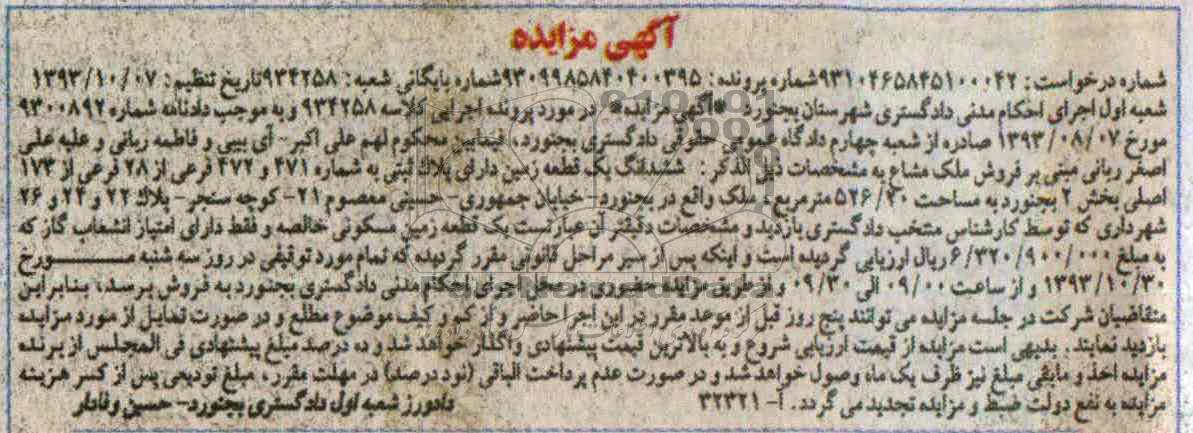 آگهی مزایده
شماره درخواست: ۹۳۱۰۴۶۵۸۴۵۱۰۰۰۴۲ شماره پرونده: ۹۳۰۹۹۸۵۸۴۰۴۰۰۳۹۵ شماره بایگانی شعبه: ۹۳۴۲۵۸ تاریخ تنظیم: ۱۳۹۳/۱۰/۰۷
شعبه اول اجرای احکام مدنی دادگستری شهرستان بجنورد *آگهی مزایده* در مورد پرونده اجرایی کلاسه ۹۳۴۲۵۸ و به موجب دادنامه شماره ۹۳۰۰۸۹۲
مورخ ۱۳۹۳/۰۸/۰۷ صادره از شعبه چهارم دادگاه عمومی حقوقی دادگستری بجنورد، فیمابین محکوم لهم علی اکبر- آی بیبی و فاطمه ربانی و علیه علی
اصغر ربانی مبنی بر فروش ملک مشاع به مشخصات ذیل الذکر: ششدانگ یک قطعه زمین دارای پلاک ثبتی به شماره ۴۷۱ و ۴۷۲ فرعی از ۲۸ فرعی از ۱۷۳
اصلی بخش ۲ بجنورد به مساحت ۵۲۶/۳۰ مترمربع، ملک واقع در بجنورد- خیابان جمهوری- حسینی معصوم ۲۱- کوچه سنجر- پلاک ۲۲ و ۲۴ و ۲۶
شهرداری که توسط کارشناس منتخب دادگستری بازدید و مشخصات دقیقتر آن عبارتست یک قطعه زمین مسکونی خالصه و فقط دارای امتیاز انشعاب گاز که
به مبلغ ۶/۳۲۰/۹۰۰/۰۰۰ ریال ارزیابی گردیده است و اینکه پس از سیر مراحل قانونی مقرر گردیده که تمام مورد توقیفی در روز سه شنبه مورخ
۱۳۹۳/۱۰/۳۰ و از ساعت ۰۹/۰۰ الی ۰۹/۳۰ و از طریق مزایده حضوری در محل اجرای احکام مدنی دادگستری بجنورد به فروش برسد، بنابراین
متقاضیان شرکت در جلسه مزایده می توانند پنج روز قبل از موعد مقرر در این اجرا حاضر و از کم و کیف موضوع مطلع و در صورت تمایل از مورد مزایده
بازدید نمایند. بدیهی است مزایده از قیمت ارزیابی شروع و به بالاترین قیمت پیشنهادی واگذار خواهد شد و ده درصد مبلغ پیشنهادی فی المجلس از برنده
مزایده اخذ و مابقی مبلغ نیز ظرف یک ماه وصول خواهد شد و در صورت عدم پرداخت الباقی (نود درصد) در مهلت مقرر، مبلغ تودیعی پس از کسر هزینه
مزایده به نفع دولت ضبط و مزایده تجدید می گردد. آ- ۳۲۳۲۱
دادورز شعبه اول دادگستری بجنورد- حسین وفادار